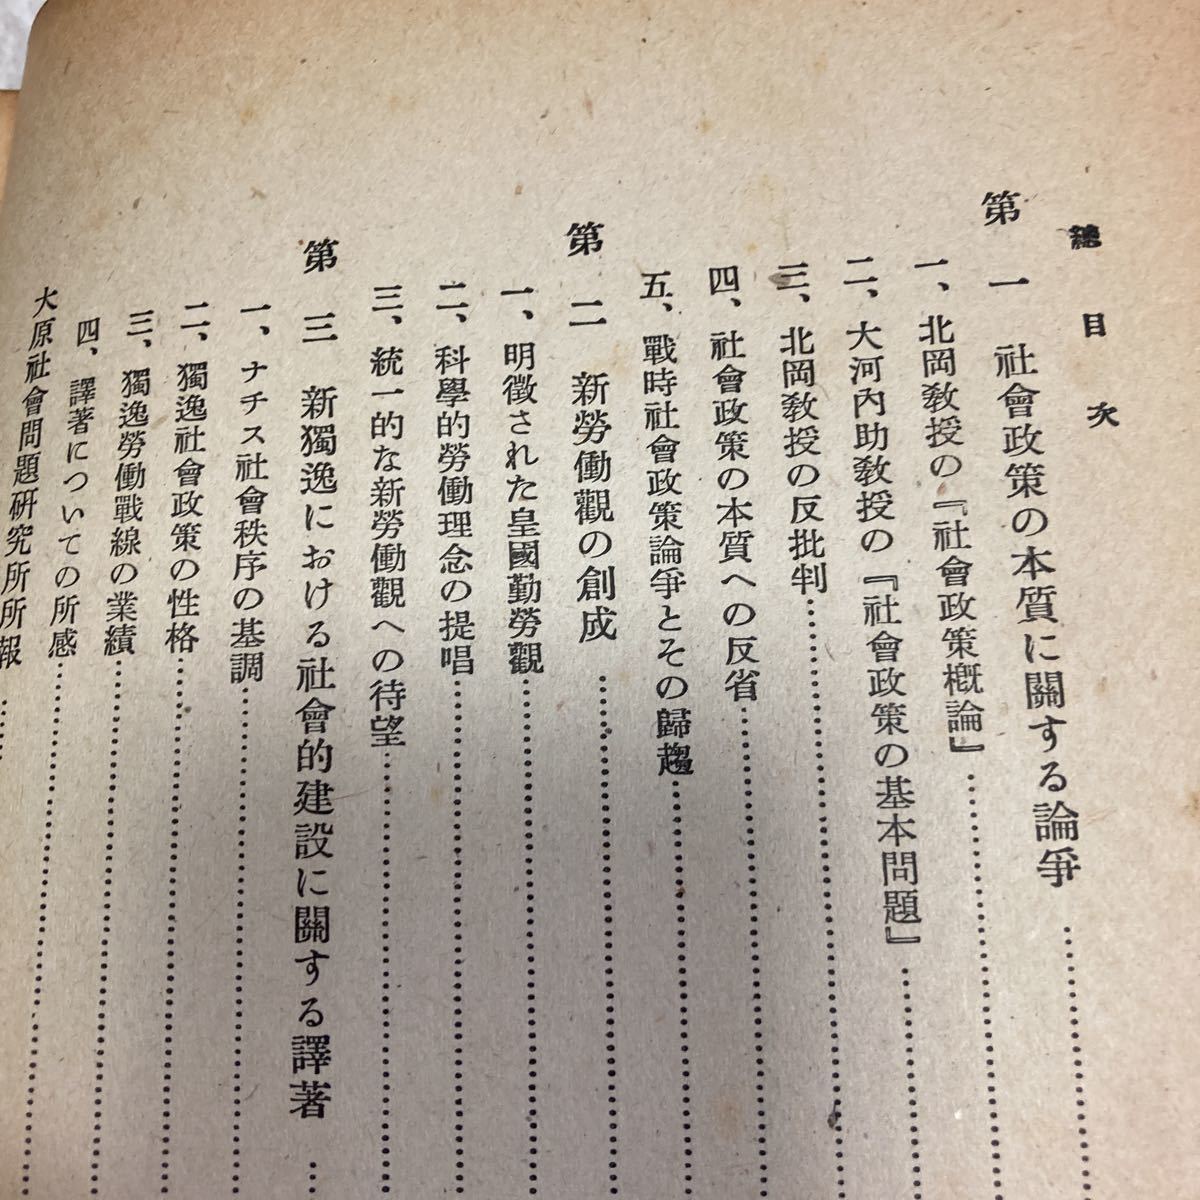 總目次
第一 社會政策の本質に關する論爭
一、北岡敎授の『社會政策槪論』
二、大河內助敎授の『社會政策の基本問題』
三、北岡敎授の反批判
四、社會政策の本質への反省
五、戰時社會政策論爭とその歸趨
第二 新勞働觀の創成
一、明徵された皇國勤勞觀
二、科學的勞働理念の提唱
三、統一的な新勞働觀への待望
第三 新獨逸における社會的建設に關する譯著
一、ナチス社會秩序の基調
二、獨逸社會政策の性格
三、獨逸勞働戰線の業績
四、譯著についての所感
大原社會問題硏究所所報